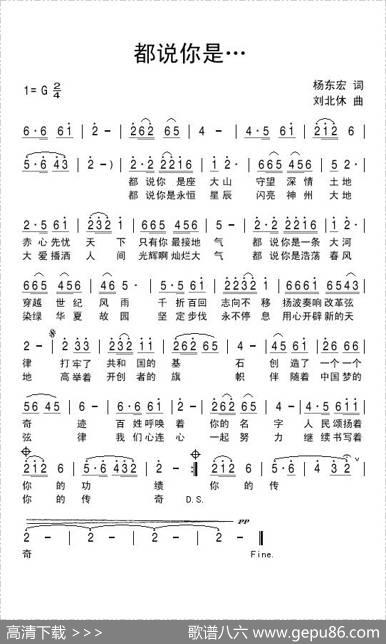 都说你是…
1=G 2/4
杨东宏 词
刘北休 曲
6·6 6i | 2 - | 262 65 | 4 - | 4·5 6i | 2i2 6 |
5·6 43 | 2 - ) | 2·2 2216 | i 2· | 665 456 | 5 2· |
都 说你 是座 大山 守望 深情 土地
都 说你是永恒 星辰 闪亮 神州 大地
2·5 6i | 232 i | 665 456 | 4 5· | 2·2 2216 | i 2· |
赤心先忧 天 下 只有你最接地 气 都 说你是一条 大河
大爱播洒 人 间 光辉啊灿烂大 气 都 说你是浩荡 春风
穿越 世纪 风雨 千折百回 志向不移 扬波奏响改革弦
染绿 华夏 故园 坚定步伐 永不停息 用心开辟新的天
律 打牢了 共和 国的 基 石 创造了 一个一个
地 高举着 开创者的 旗 帜 伴随着 中国梦的
56 45 | 6 - | 4·5 6i | 2 - | 262 65 | 4·5 6i |
奇 迹 百姓呼唤 着 你的 名 字 人民颂扬着
弦 律 我们心连 心 一起 努 力 继续书写着
你 的 功 绩 你 的 传
你 的 传 奇 D.S.
pp
2 - | 2 - | 2 - | 2 - | 2 - ‖
奇 Fine.
高清下载 >>>
歌谱八六 www.gepu86.com